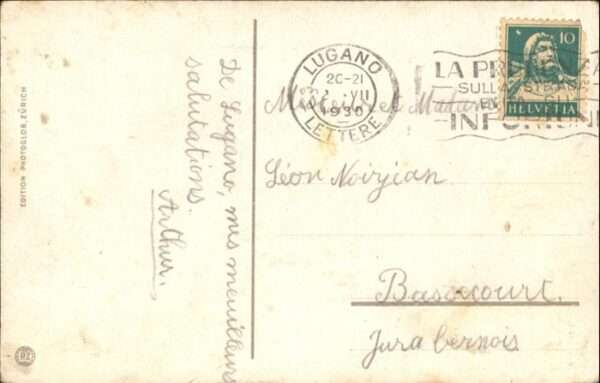 EDITION PHOTOGLOB, ZÜRICH
De Lugano, mes meuilleurs
salutations.
Arthur.
LUGANO
20-21
VII
1930
LETTERE
LA
SULL
10
HELVETIA
et
Léon
Bassecourt.
Jura bernois